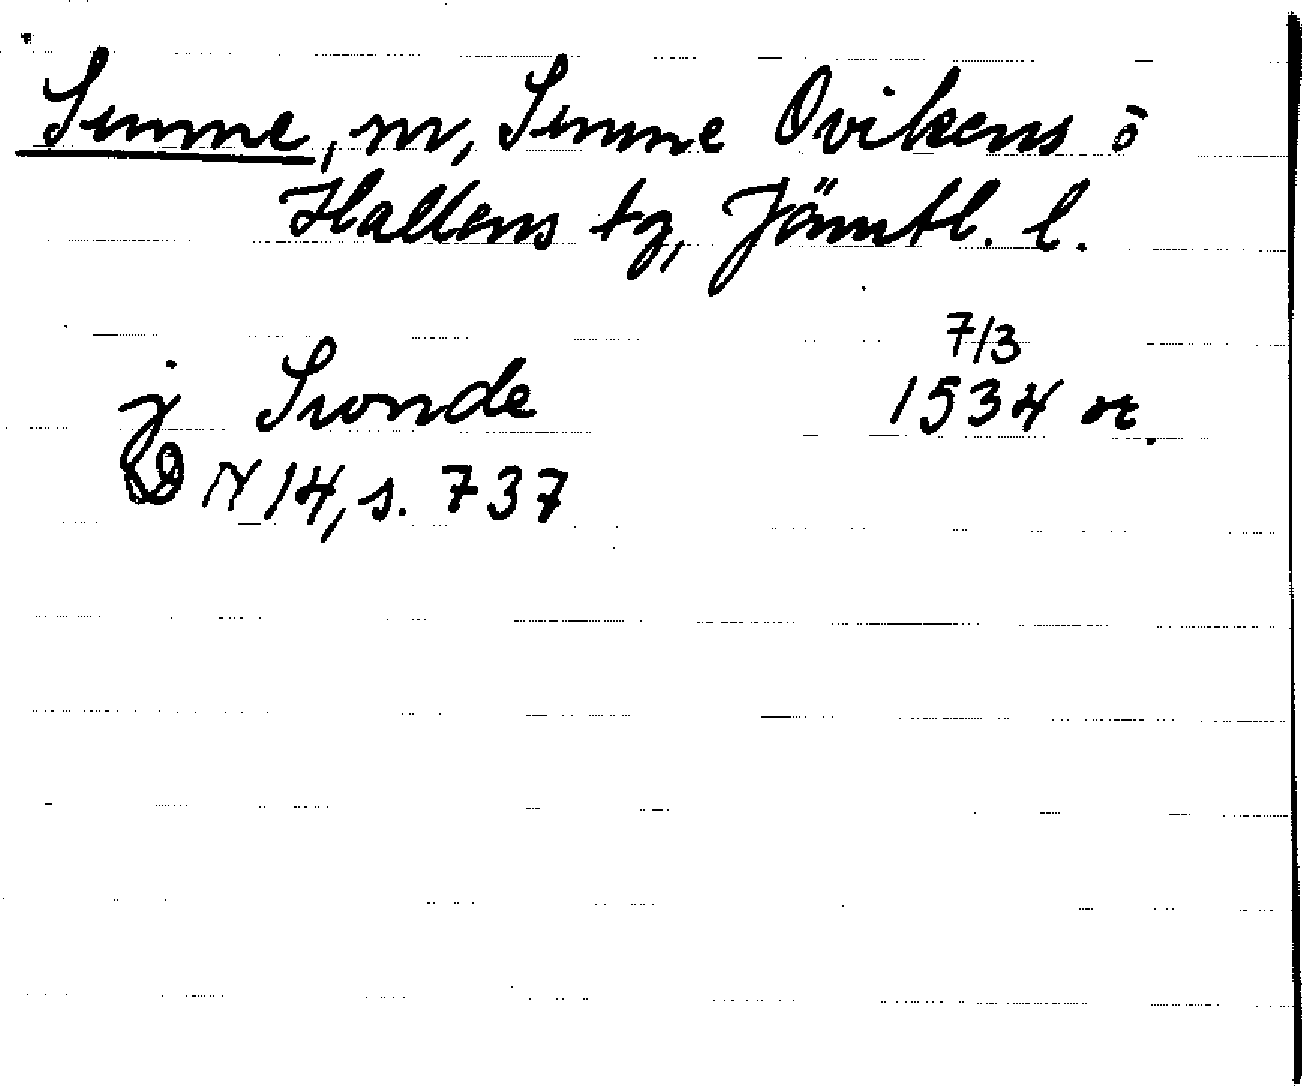 Sunne, m, Sunne Ovikens o
Hallens tg, Jämtl. l.
7/3
j Swonde 1534 or.
DN 14, s. 737